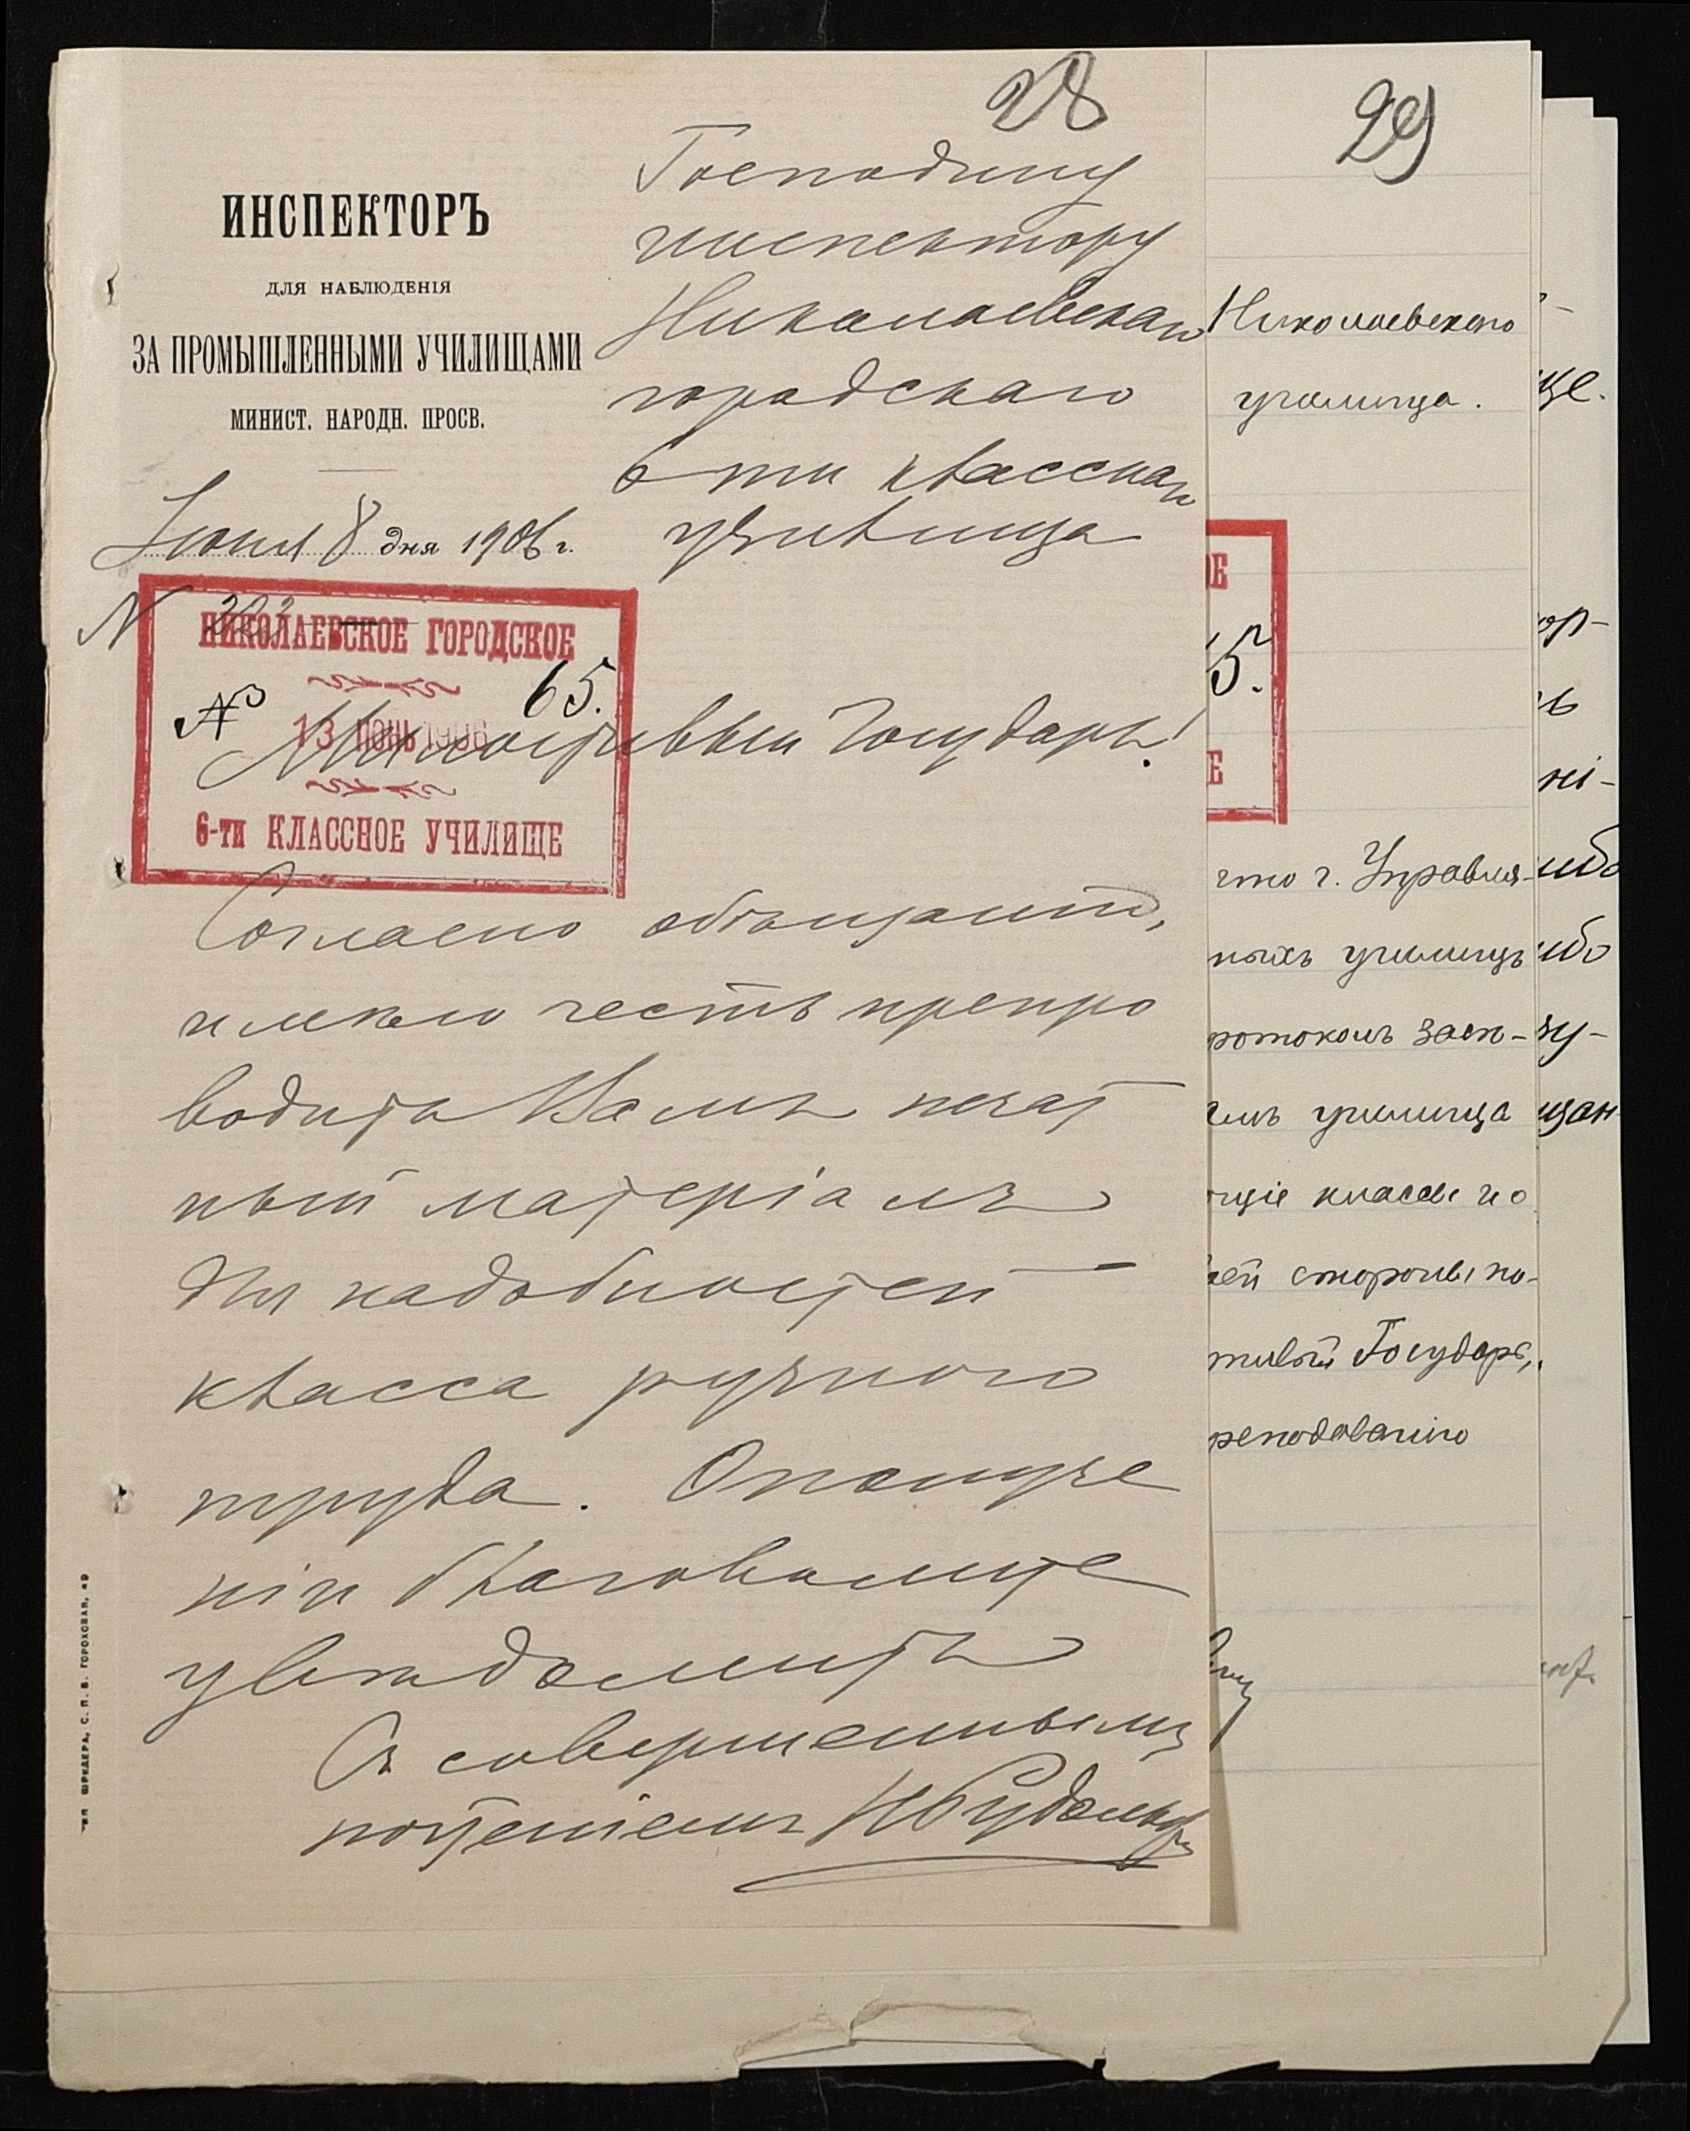 28
ИНСПЕКТОРЪ
ДЛЯ НАБЛЮДЕНІЯ
ЗА ПРОМЫШЛЕННЫМИ УЧИЛИЩАМИ
МИНИСТ. НАРОДН. ПРОСВ.
Іюня 8 дня 1906 г.
N 202
Господину
инспектору
Николаевскаго
городскаго
6 ти класснаго
училища
НИКОЛАЕВСКОЕ ГОРОДСКОЕ
№ 65.
13 ІЮНЬ 1906
6-ти КЛАССНОЕ УЧИЛИЩЕ
Милостивый Государь!
Согласно обѣщанію,
имѣю честь препро
водить Вамъ печат
ный матеріалъ
для надобностей
класса ручного
труда. О получе
ніи благоволите
увѣдомить
Съ совершеннымъ
почтеніемъ
ТИП ШРЕДЕРА, С. П. Б. ГОРОХОВАЯ, 49
29
Николаевскаго
училища.
Е
5.
Е
что г. Управля-
ныхъ училищъ
ротоколъ засѣ-
емъ училища
щіе классы и о
ей стороны по-
тивый Государь,
реподаванію
ще.
ор-
ь
ні-
ибо
ибо
зу-
щан